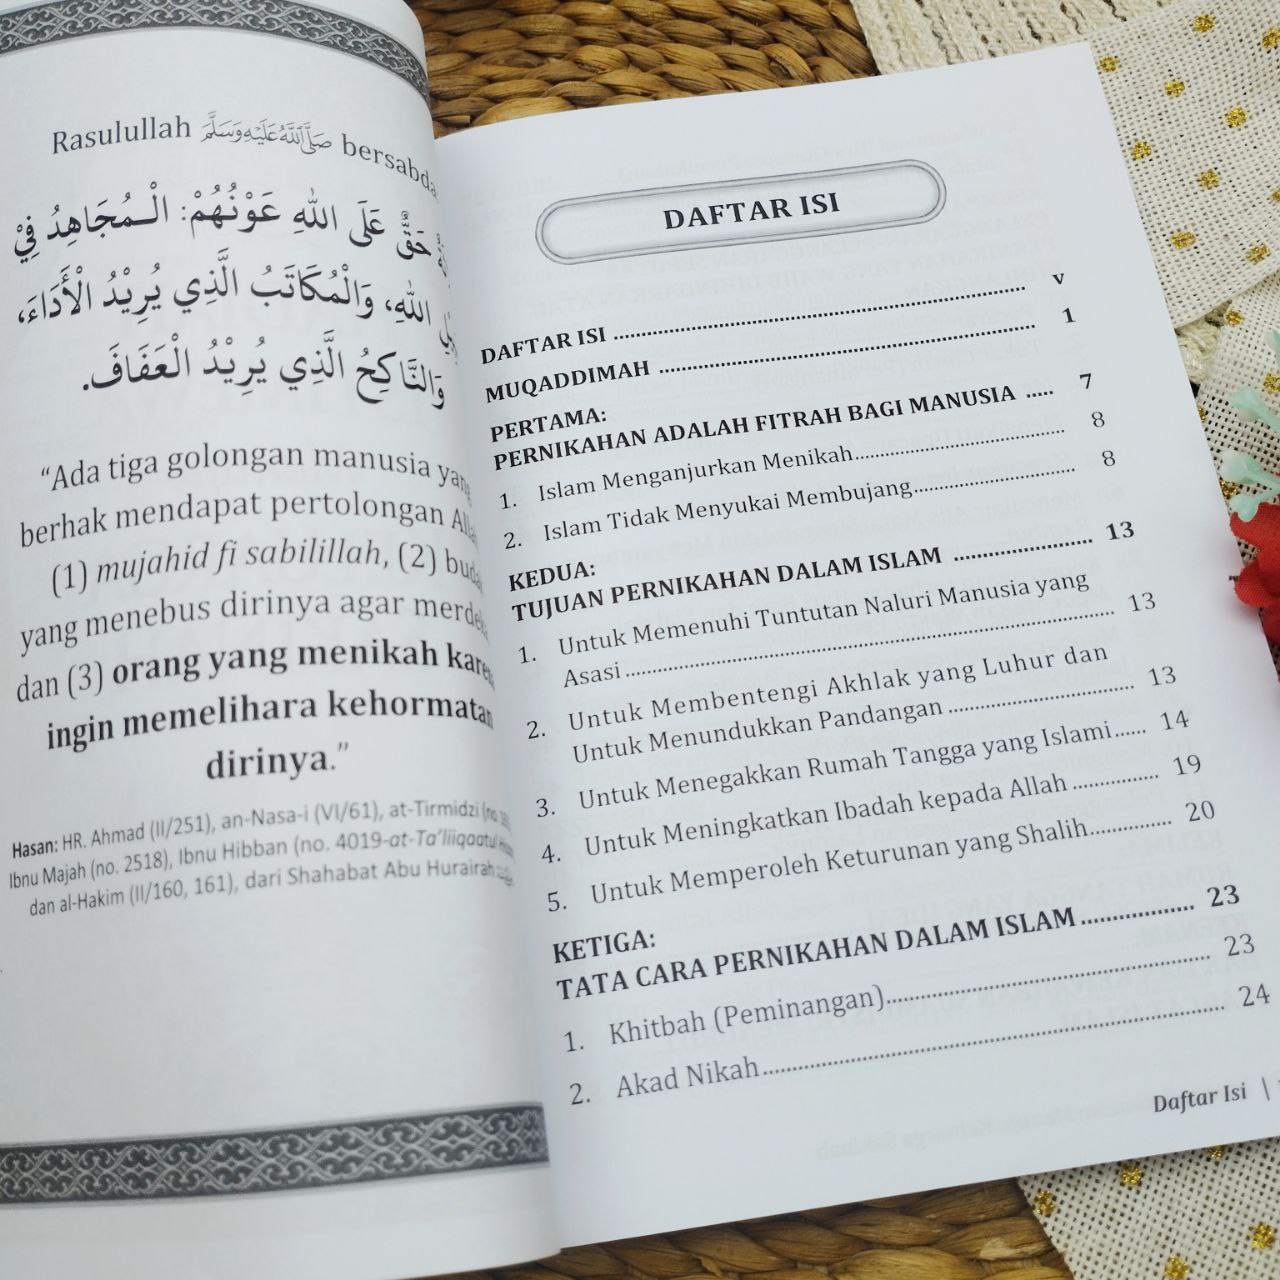 Rasulullah ﷺ bersabda
حَقٌّ عَلَى اللهِ عَوْنُهُمْ: الْـمُجَاهِدُ فِيْ
اللهِ، وَالْمُكَاتَبُ الَّذِي يُرِيْدُ الْأَدَاءَ،
وَالنَّاكِحُ الَّذِي يُرِيْدُ الْعَفَافَ.
“Ada tiga golongan manusia yang
berhak mendapat pertolongan Allah
(1) mujahid fi sabilillah, (2) budak
yang menebus dirinya agar merdeka
dan (3) orang yang menikah karena
ingin memelihara kehormatan
dirinya.”
Hasan: HR. Ahmad (II/251), an-Nasa-i (VI/61), at-Tirmidzi (no.
Ibnu Majah (no. 2518), Ibnu Hibban (no. 4019-at-Ta’liiqaatul
dan al-Hakim (II/160, 161), dari Shahabat Abu Hurairah
DAFTAR ISI
DAFTAR ISI ........ v
MUQADDIMAH ........ 1
PERTAMA:
PERNIKAHAN ADALAH FITRAH BAGI MANUSIA ..... 7
1. Islam Menganjurkan Menikah........ 8
2. Islam Tidak Menyukai Membujang........ 8
KEDUA:
TUJUAN PERNIKAHAN DALAM ISLAM ........ 13
1. Untuk Memenuhi Tuntutan Naluri Manusia yang
Asasi ........ 13
2. Untuk Membentengi Akhlak yang Luhur dan
Untuk Menundukkan Pandangan ........ 13
3. Untuk Menegakkan Rumah Tangga yang Islami...... 14
4. Untuk Meningkatkan Ibadah kepada Allah ........ 19
5. Untuk Memperoleh Keturunan yang Shalih........ 20
KETIGA:
TATA CARA PERNIKAHAN DALAM ISLAM........ 23
1. Khitbah (Peminangan)........ 23
2. Akad Nikah........ 24
Daftar Isi |